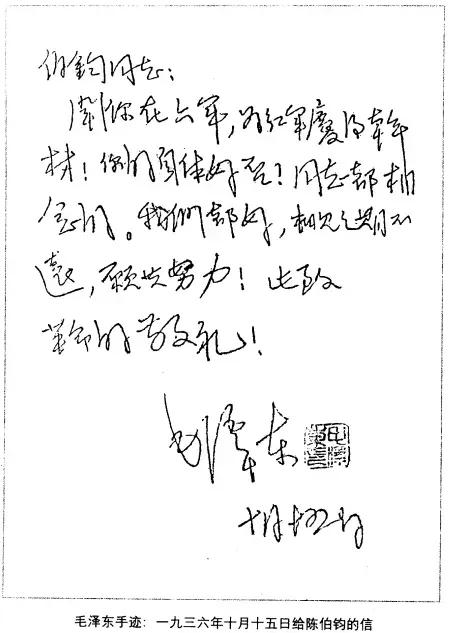 伯鈞同志:
聞你在六军,为红军慶得幹
材!你的身体好否?同志都相
念的。我们都好,相见之期不
遠,願共努力!此致
革命的敬礼!
毛澤东
十月十五日
毛泽东手迹:一九三六年十月十五日给陈伯钧的信